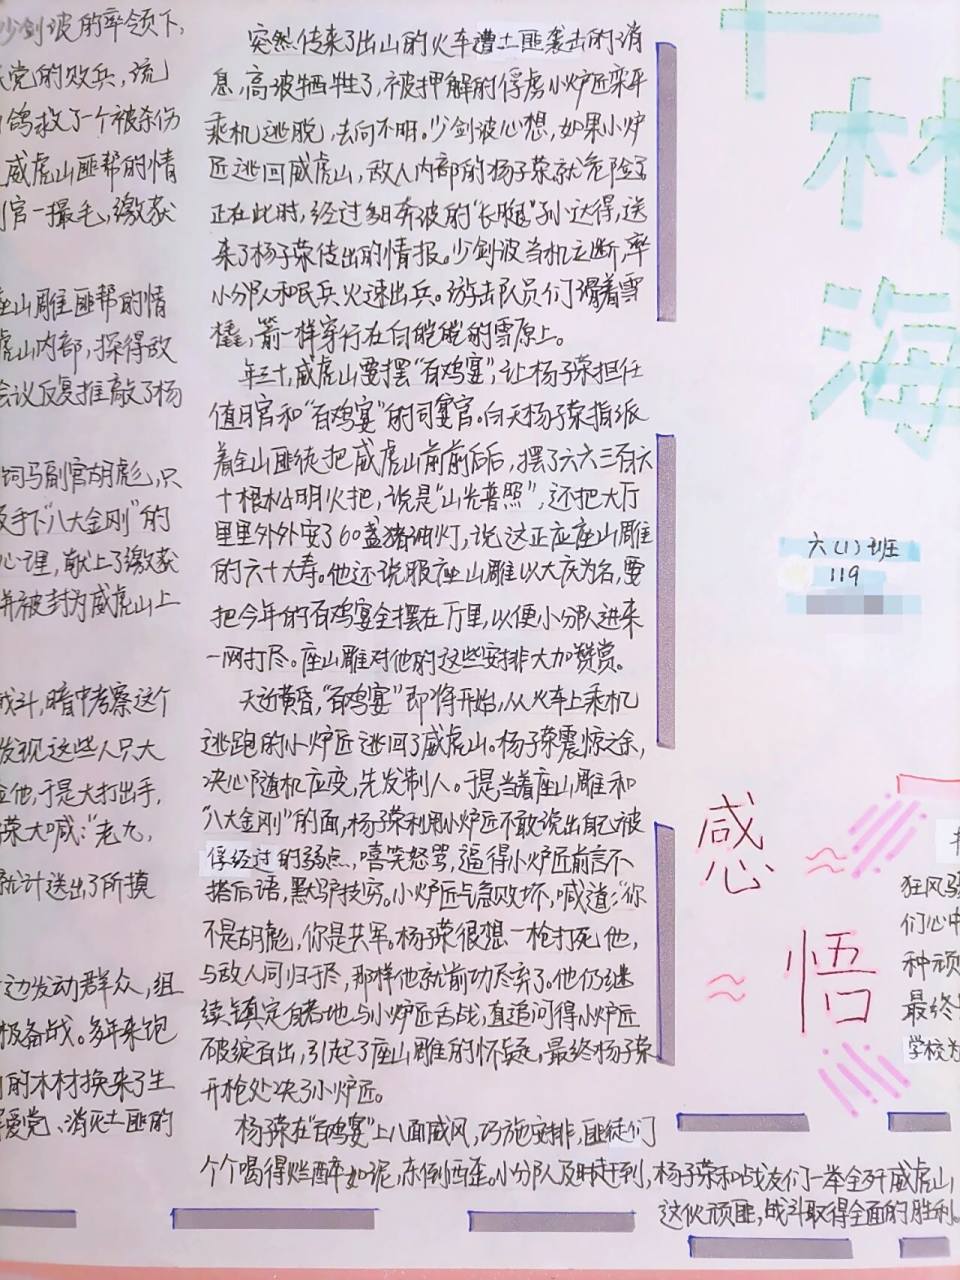 少剑波的率领下,
党的败兵,流
鸽救了一个被杀伤
威虎山匪帮的情
官一撮毛,缴获
座山雕匪帮的情
虎山内部,探得敌
会议反复推敲了杨
饲马副官胡彪,只
手下“八大金刚”的
心理,献上了缴获
并被封为威虎山上
战斗,暗中考察这个
发现这些人只大
他,于是大打出手,
荣大喊:“老九,
就计送出了所摸
边发动群众,组
极备战。多年来饱
的木材换来了生
爱党、消灭土匪的
突然传来了出山的火车遭土匪袭击的消
息,高波牺牲了,被押解的俘虏小炉匠栾平
乘机逃脱,去向不明。少剑波心想,如果小炉
匠逃回威虎山,敌人内部的杨子荣就危险了
正在此时,经过多日奔波的“长腿”孙达得,送
来了杨子荣传出的情报。少剑波当机立断,率
小分队和民兵火速出兵。游击队员们滑着雪
橇,箭一样穿行在白皑皑的雪原上。
年三十,威虎山要摆“百鸡宴”,让杨子荣担任
值日官和“百鸡宴”的司宴官。白天杨子荣指派
着全山匪徒把威虎山前前后后,摆了六六三百六
十根松明火把,说是“山光普照”,还把大厅
里里外外安了60盏猪油灯,说这正应座山雕
的六十大寿。他还说服座山雕以大庆为名,要
把今年的百鸡宴全摆在厅里,以便小分队进来
一网打尽。座山雕对他的这些安排大加赞赏。
天近黄昏,“百鸡宴”即将开始,从火车上乘机
逃跑的小炉匠逃回了威虎山。杨子荣震惊之余,
决心随机应变,先发制人。于是当着座山雕和
“八大金刚”的面,杨子荣利用小炉匠不敢说出自己被
俘经过的弱点,嘻笑怒骂,逼得小炉匠前言不
搭后语,黑驴技穷。小炉匠气急败坏,喊道:“你
不是胡彪,你是共军。杨子荣很想一枪打死他,
与敌人同归于尽,那样他就前功尽弃了。他仍继
续镇定自若地与小炉匠舌战,直追问得小炉匠
破绽百出,引起了座山雕的怀疑,最终杨子荣
开枪处决了小炉匠。
杨子荣在“百鸡宴”上八面威风,巧施安排,匪徒们
个个喝得烂醉如泥,东倒西歪。小分队及时赶到,杨子荣和战友们一举全歼威虎山
这伙顽匪,战斗取得全面的胜利。
林
海
六(1)班
119
感
悟
狂风
们心中
种顽
最终
学校为